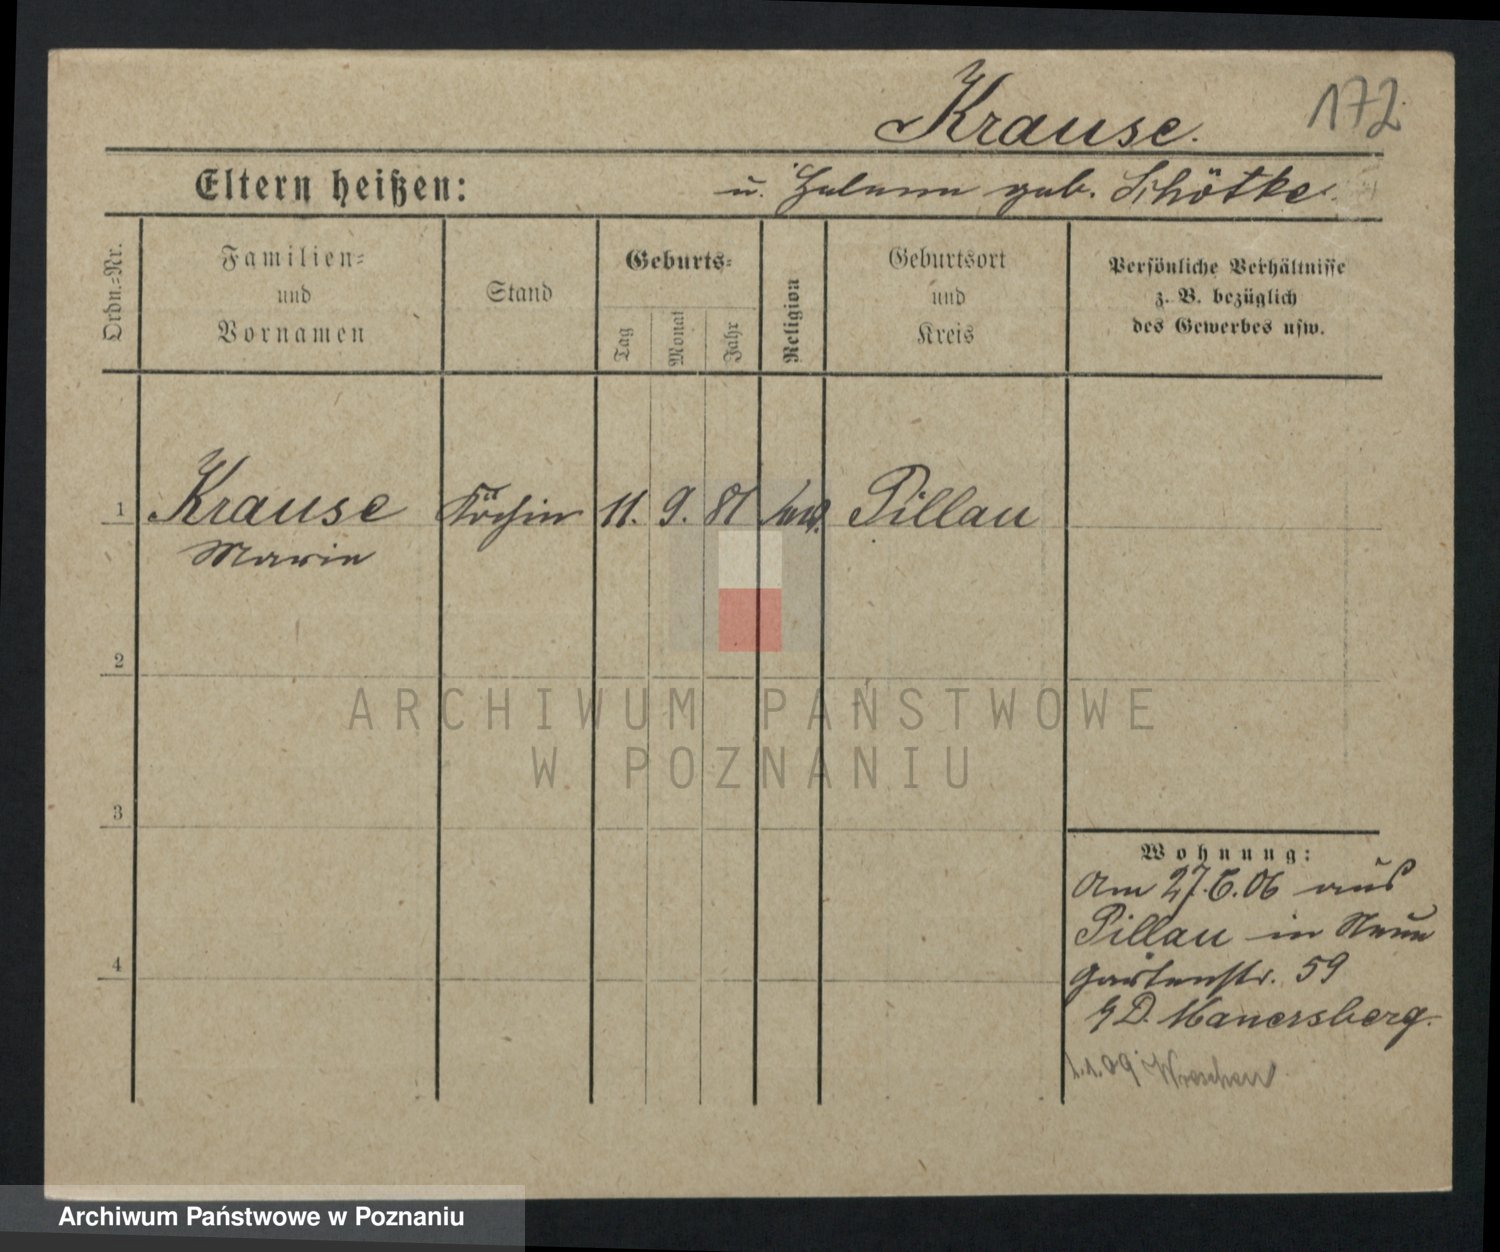 Krause.
172
Eltern heißen:
u. Helene geb. Schötke.
Ordn.=Nr.
Familien=
und
Vornamen
Stand
Geburts=
Tag
Monat
Jahr
Religion
Geburtsort
und
Kreis
Persönliche Verhältnisse
z. B. bezüglich
des Gewerbes usw.
1 Krause Köchin 11. 9. 81 Pillau
Marie
2
3
4
Wohnung:
Am 27.6.06 aus
Pillau in Neue
Gartenstr. 59
Manersberg.
1.1.09 Wreschen
ARCHIWUM PAŃSTWOWE
W POZNANIU
Archiwum Państwowe w Poznaniu